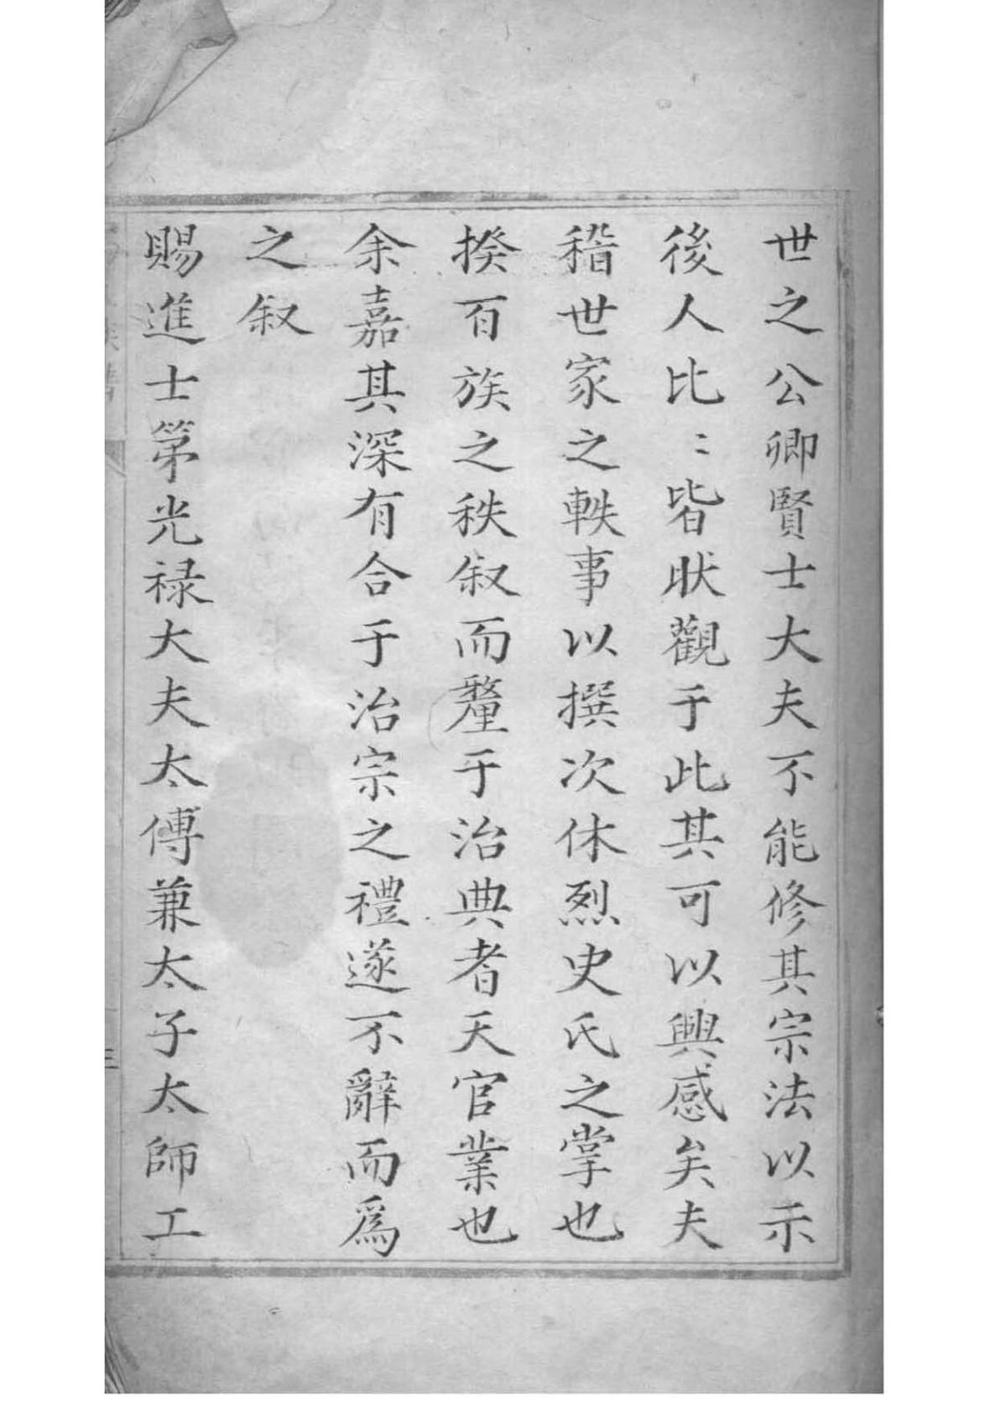 世之公卿賢士大夫不能修其宗法以示
後人比〻皆狀觀于此其可以興感矣夫
稽世家之軼事以撰次休烈史氏之掌也
揆百族之秩叙而釐于治典者天官業也
余嘉其深有合于治宗之禮遂不辭而爲
之叙
賜進士第光禄大夫太傅兼太子太師工
三